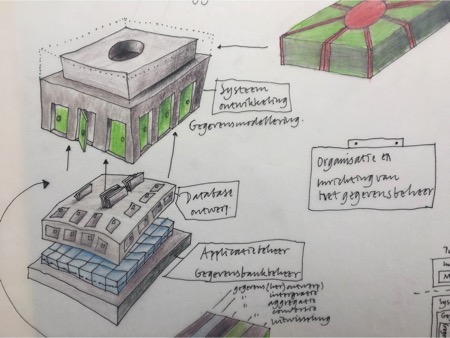 Systeem
ontwikkeling
Gegevensmodellering.
Organisatie en
inrichting van
het gegevensbeheer
Database
ontwerp
Applicatiebeheer
Gegevensbankbeheer
gegevens(her)ontwerp)
" integratie
" aggregatie
" conversie
" uitwisseling